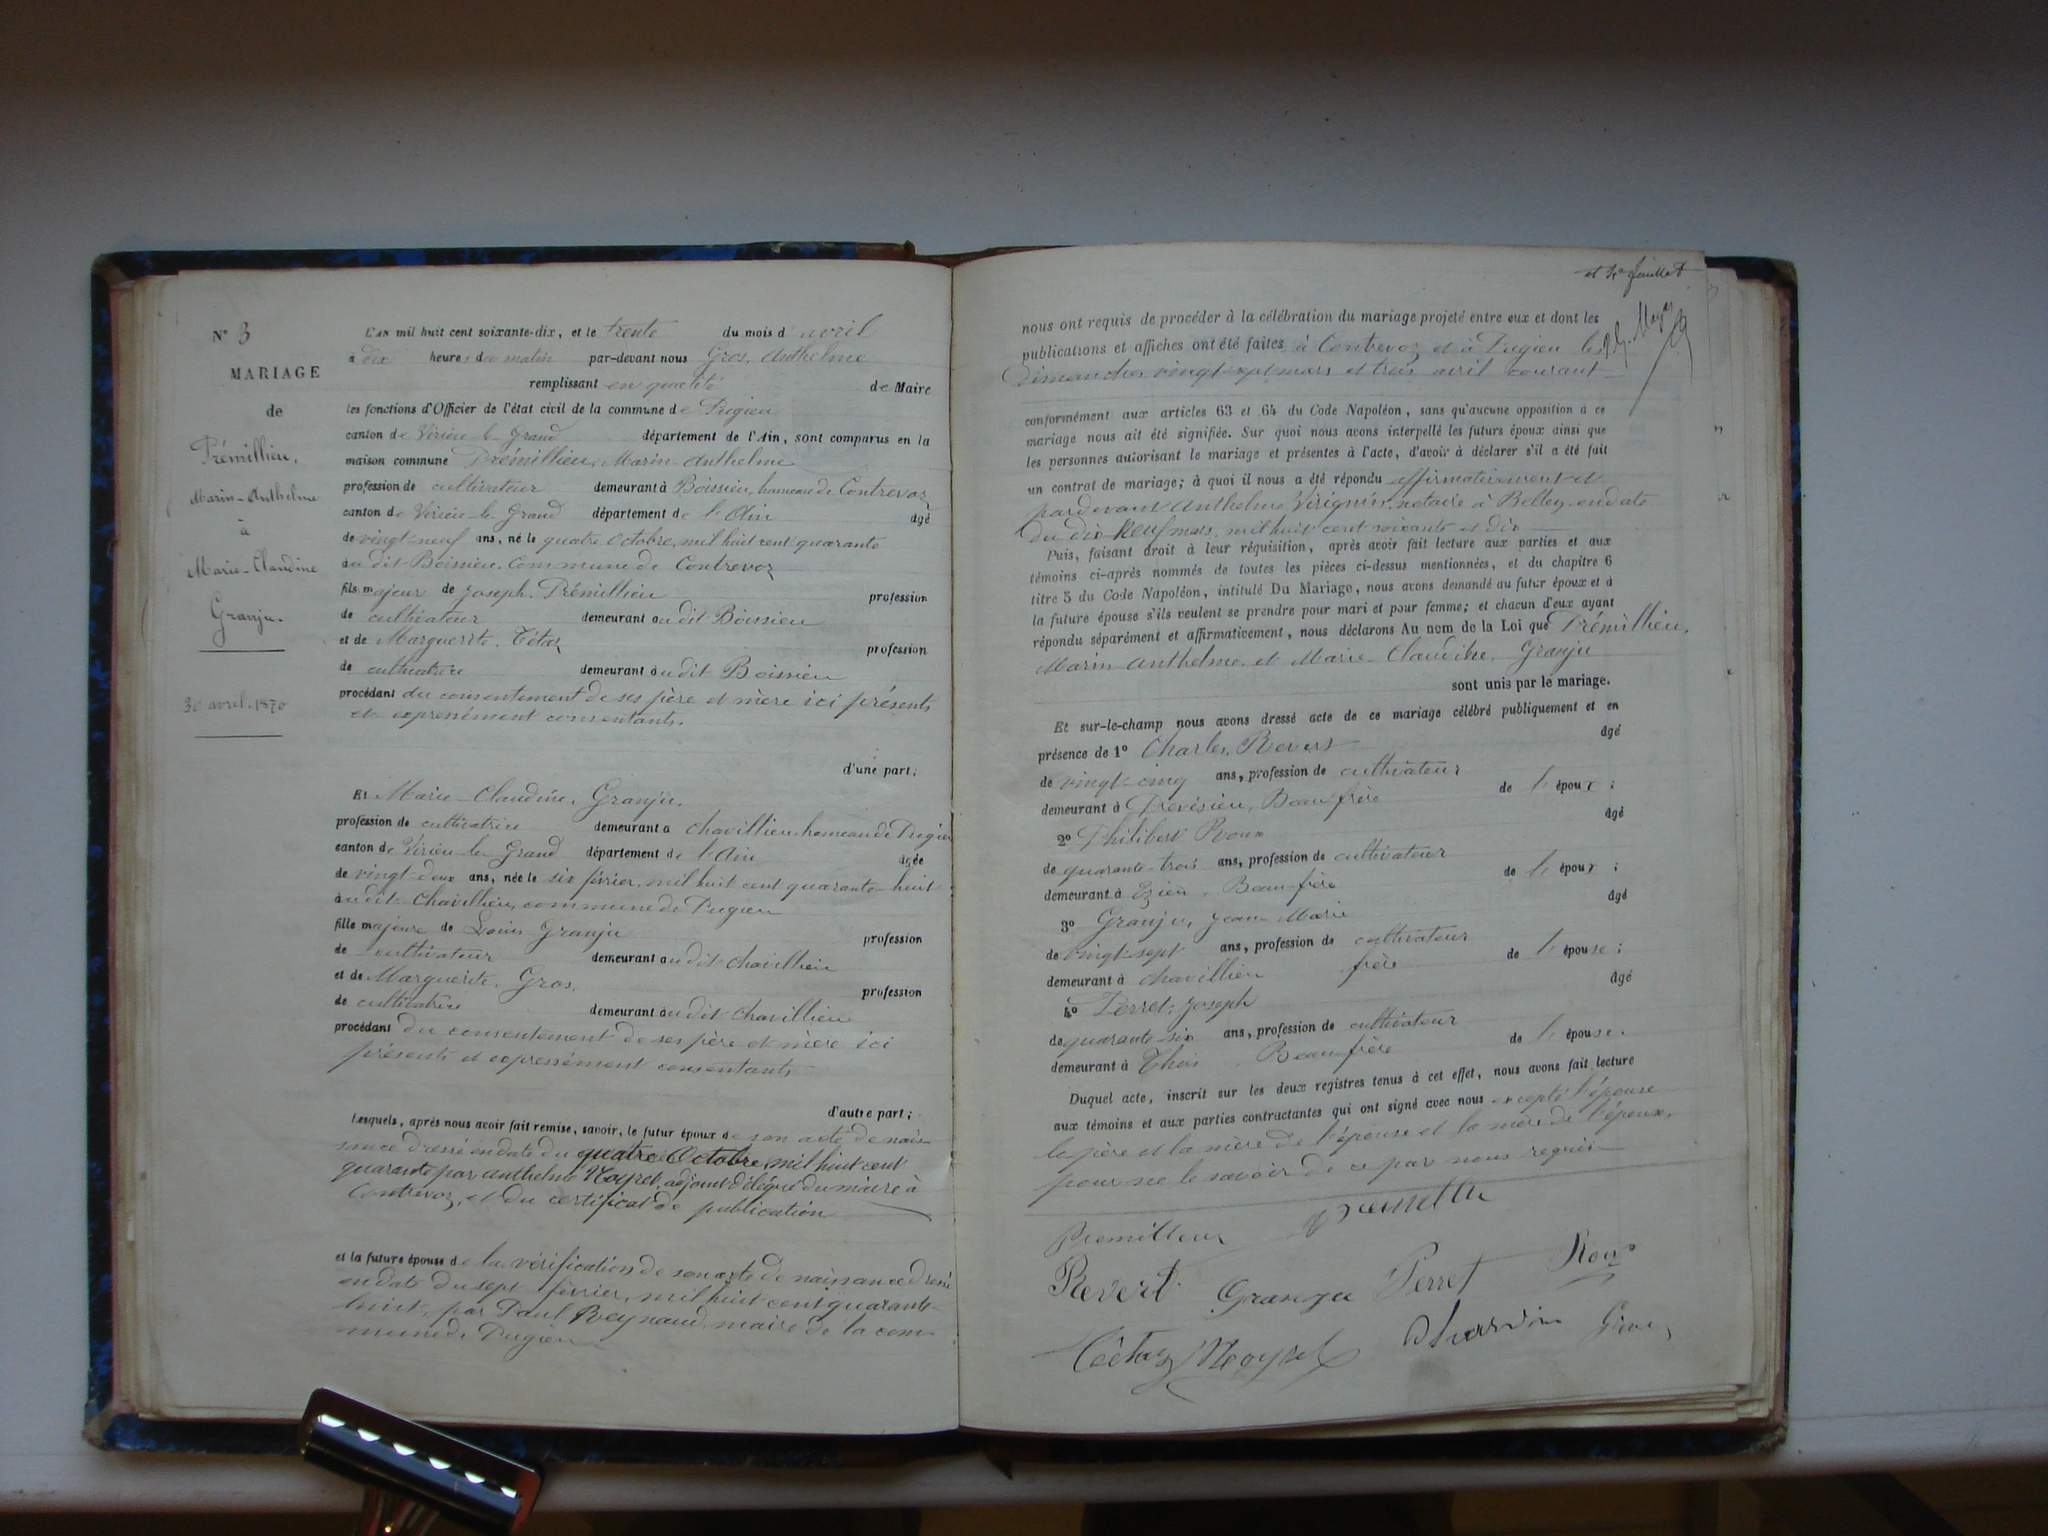 N° 3
MARIAGE
de
Prémillieu,
Marin-Anthelme
à
Marie-Claudine
Granju.
30 avril 1870
L'AN mil huit cent soixante-dix, et le trente du mois d'avril
à dix heures du matin par-devant nous Gros, Anthelme
remplissant en qualité de Maire
les fonctions d'Officier de l'état civil de la commune de Pugieu
canton de Virieu-le-Grand département de l'Ain, sont comparus en la
maison commune Prémillieu, Marin-Anthelme
profession de cultivateur demeurant à Boissieu, hameau de Contrevoz
canton de Virieu-le-Grand département de l'Ain âgé
de vingt-neuf ans, né le quatre Octobre, mil huit cent quarante
au dit Boissieu, Commune de Contrevoz
fils majeur de Joseph Prémillieu profession
de cultivateur demeurant au dit Boissieu
et de Marguerite Tétaz profession
de cultivatrice demeurant au dit Boissieu
procédant du consentement de ses père et mère ici présents
et expressément consentants.
d'une part;
Et Marie-Claudine, Granju.
profession de cultivatrice demeurant à Chavillieu hameau de Pugieu
canton de Virieu-le-Grand département de l'Ain âgée
de vingt-deux ans, née le six février, mil huit cent quarante-huit
au dit Chavillieu, commune de Pugieu
fille majeure de Louis Granju profession
de cultivateur demeurant au dit Chavillieu
et de Marguerite, Gros, profession
de cultivatrice demeurant au dit Chavillieu
procédant du consentement de ses père et mère ici
présents et expressément consentants
d'autre part;
Lesquels, après nous avoir fait remise, savoir, le futur époux de son acte de nais-
sance dressé en date du quatre Octobre, mil huit cent
quarante par Anthelme Moyret, adjoint délégué du maire à
Contrevoz, et du certificat de publication
et la future épouse de la vérification de son acte de naissance dressé
en date du sept février, mil huit cent quarante-
huit, par Paul Reynaud, maire de la com-
mune de Pugieu
et 4e feuillet
nous ont requis de procéder à la célébration du mariage projeté entre eux et dont les
publications et affiches ont été faites à Contrevoz et à Pugieu les
Dimanches vingt-sept mars et trois avril courant
conformément aux articles 63 et 64 du Code Napoléon, sans qu'aucune opposition à ce
mariage nous ait été signifiée. Sur quoi nous avons interpellé les futurs époux ainsi que
les personnes autorisant le mariage et présentes à l'acte, d'avoir à déclarer s'il a été fait
un contrat de mariage; à quoi il nous a été répondu affirmativement et
pardevant Anthelme notaire à Belley, en date
du dix-neuf mars, mil huit cent soixante et dix
Puis, faisant droit à leur réquisition, après avoir fait lecture aux parties et aux
témoins ci-après nommés de toutes les pièces ci-dessus mentionnées, et du chapitre 6
titre 5 du Code Napoléon, intitulé Du Mariage, nous avons demandé au futur époux et à
la future épouse s'ils veulent se prendre pour mari et pour femme; et chacun d'eux ayant
répondu séparément et affirmativement, nous déclarons Au nom de la Loi que Prémillieu,
Marin Anthelme, et Marie-Claudine, Granju
sont unis par le mariage.
Et sur-le-champ nous avons dressé acte de ce mariage célébré publiquement et en
présence de 1° Charles, Revert âgé
de vingt-cinq ans, profession de cultivateur
demeurant à Beau-frère de l'époux;
2° Philibert Roux âgé
de quarante-trois ans, profession de cultivateur
demeurant à Beau-frère de l'époux;
3° Granju, Jean-Marie âgé
de vingt-sept ans, profession de cultivateur
demeurant à Chavillieu frère de l'épouse;
4° Perret, Joseph âgé
de quarante-six ans, profession de cultivateur
demeurant à Beau-frère de l'épouse.
Duquel acte, inscrit sur les deux registres tenus à cet effet, nous avons fait lecture
aux témoins et aux parties contractantes qui ont signé avec nous excepté l'épouse
le père et la mère de l'épouse et la mère de l'époux,
pour ne le savoir de ce par nous requis
Premillieu
Revert Granju Perret Roux
Tétaz Moyret Gros,